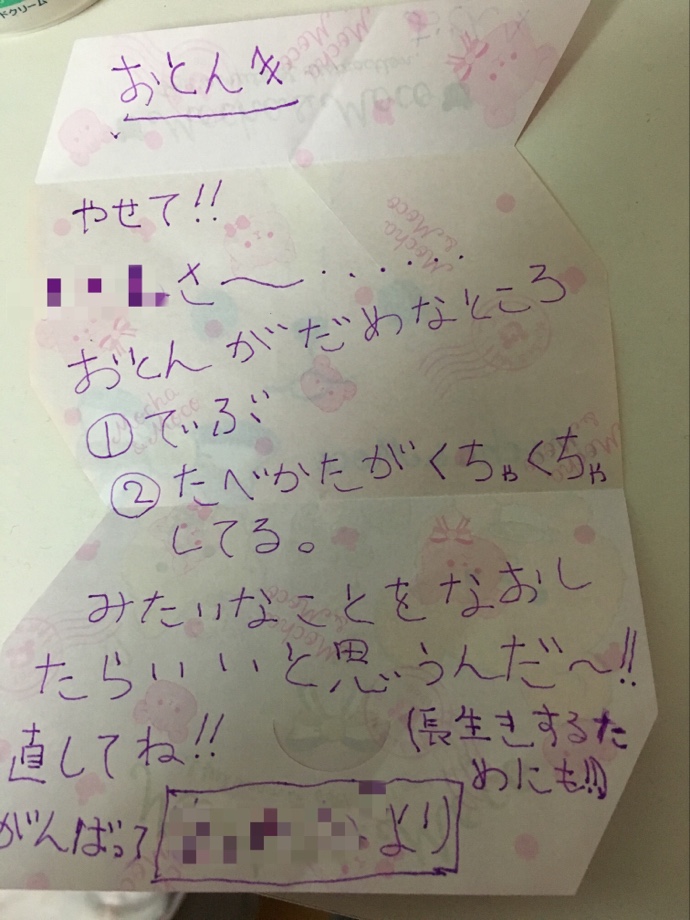 ドクリーム
おとんへ
やせて!!
さ〜・・・・・・
おとんがだめなところ
①でぃぶ
②たべかたがくちゃくちゃ
してる。
みたいなことをなおし
たらいいと思うんだ〜!!
直してね!!
(長生きするた
めにも!!)
がんばって
より
Mocha
& Moco
Mocha
& Moco